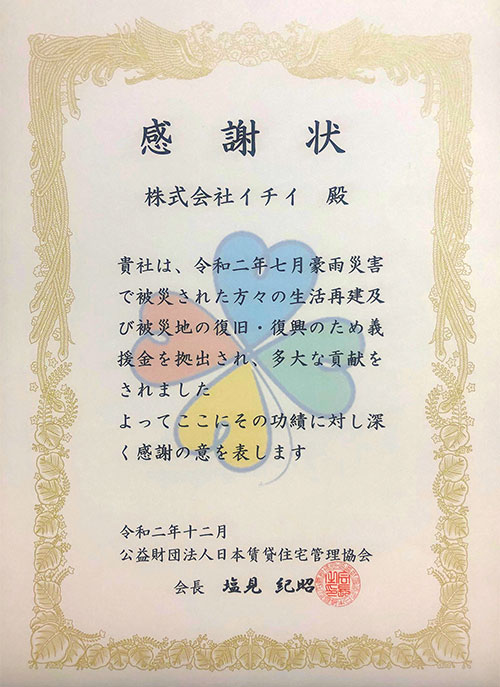 感謝状
株式会社イチイ 殿
貴社は、令和二年七月豪雨災害
で被災された方々の生活再建及
び被災地の復旧・復興のため義
援金を拠出され、多大な貢献を
されました
よってここにその功績に対し深
く感謝の意を表します
令和二年十二月
公益財団法人日本賃貸住宅管理協会
会長 塩見 紀昭